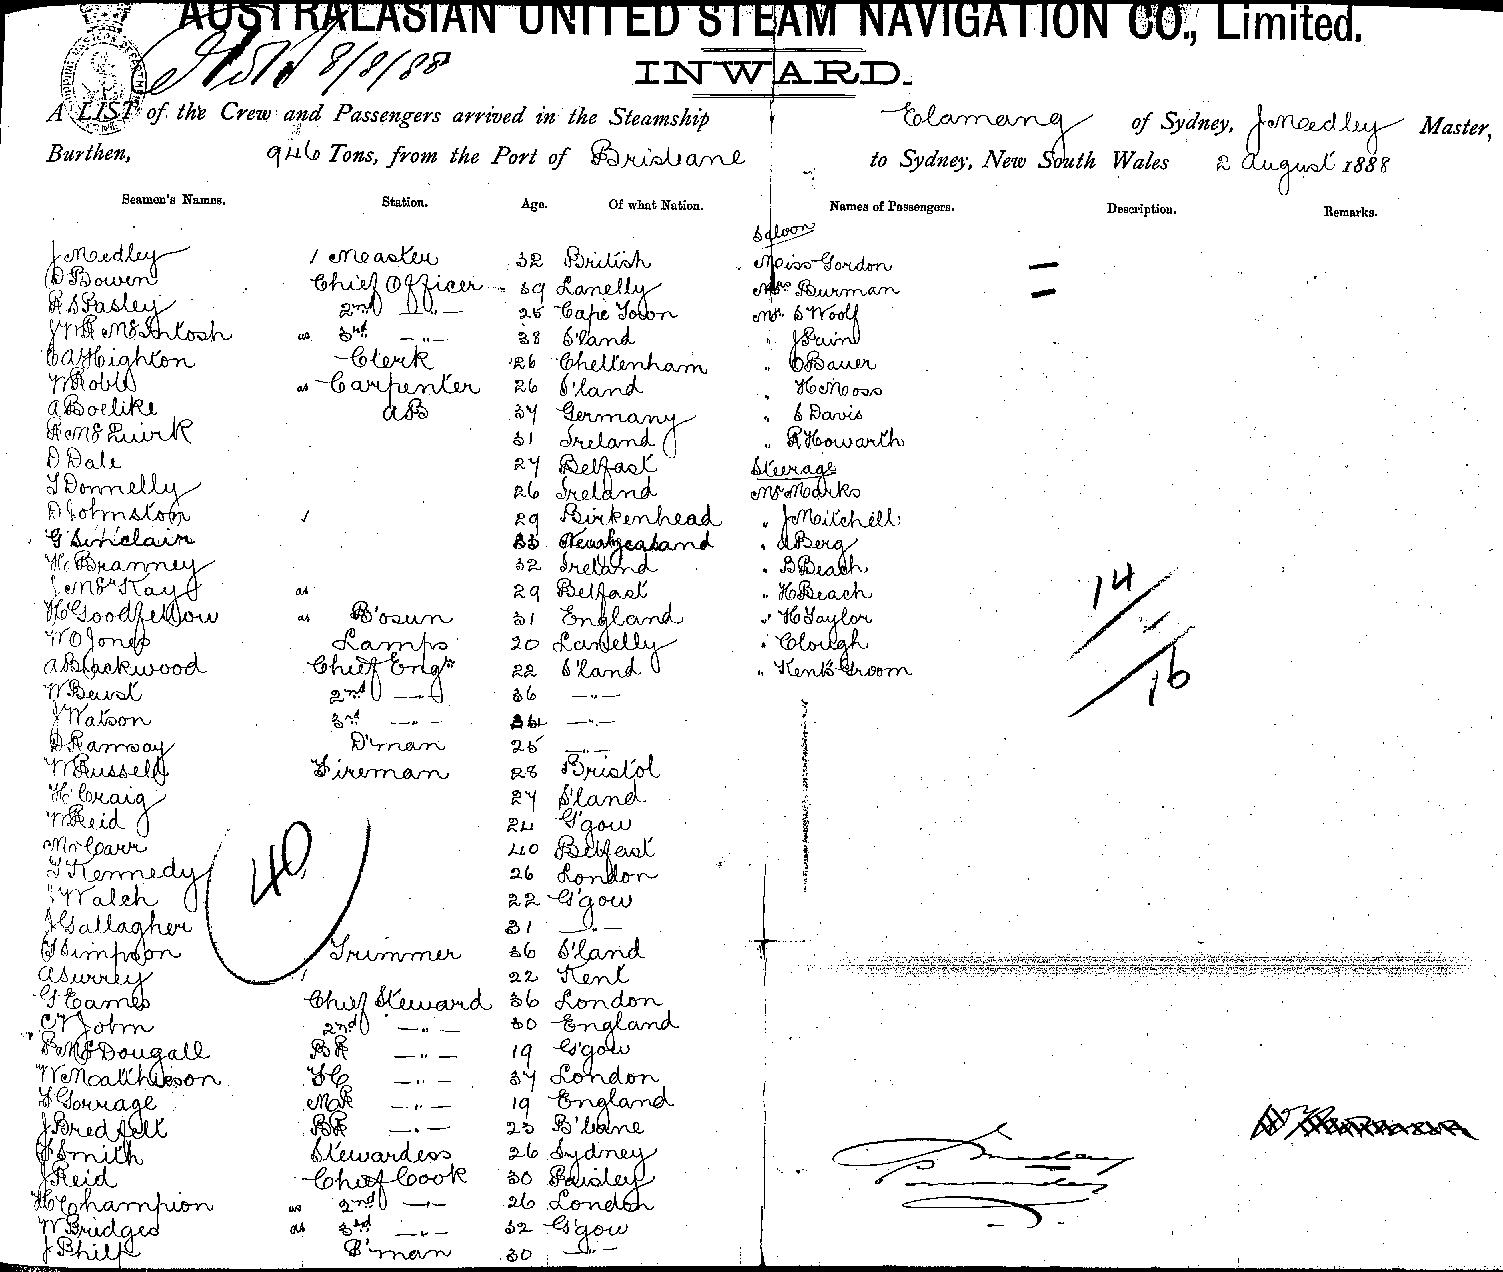 AUSTRALASIAN UNITED STEAM NAVIGATION CO., Limited.
8/8/88
INWARD.
A LIST of the Crew and Passengers arrived in the Steamship Elamang of Sydney, J Meedley Master,
Burthen, 946 Tons, from the Port of Brisbane to Sydney, New South Wales 2 August 1888
Seamen's Names. Station. Age. Of what Nation. Names of Passengers. Description. Remarks.
Saloon
J Meedley 1 Master 32 British
D Bowen Chief Officer 39 Lanelly
R S Pasley 2nd —"— 25 Cape Town
J W R McIntosh as 3rd —"— 38 S'land
C A Highton Clerk 26 Cheltenham
W Robb as Carpenter 26 S'land
A Boelike AB 37 Germany
R McQuirk 31 Ireland
D Dale 27 Belfast
T Donnelly 26 Ireland
D Johnston 29 Birkenhead
G Sinclair 33 New Zealand
H Branney 32 Ireland
J McKay as 29 Belfast
H Goodfellow as B'osun 31 England
W O Jones Lamps 20 Lanelly
A Blackwood Chief Engr 22 S'land
W Beust 2nd —"— 36 —"—
J Watson 3rd —"— 34 —"—
D Ramsay D'man 25 —"—
W Russell Fireman 28 Bristol
H Craig 27 S'land
W Reid 24 G'gow
M Carr 40 Belfast
T Kennedy 26 London
Walch 22 G'gow
J Gallagher 31 —"—
Simpson Trimmer 36 S'land
A Surrey 22 Kent
G Eames Chief Steward 36 London
C W John 2nd —"— 30 England
B McDougall BR —"— 19 G'gow
W Matthieson FC —"— 37 London
F Gorrage MR —"— 19 England
J Bredfelt BR —"— 23 B'bane
Smith Stewardess 26 Sydney
J Reid Chief Cook 30 Paisley
H Champion as 2nd —"— 26 London
W Bridges as 3rd —"— 32 G'gow
J Philp B'man 30 —"—
40
Miss Gordon —
Mrs Burman —
Mr S Woolf
" J Pain
" C Bauer
" H Moss
" S Davis
" R Howarth
Steerage
Mr Marks
" J Mitchell
" A Berg
" B Beach
" H Beach
" H Taylor
" Clough
" Kent Groom
14
16